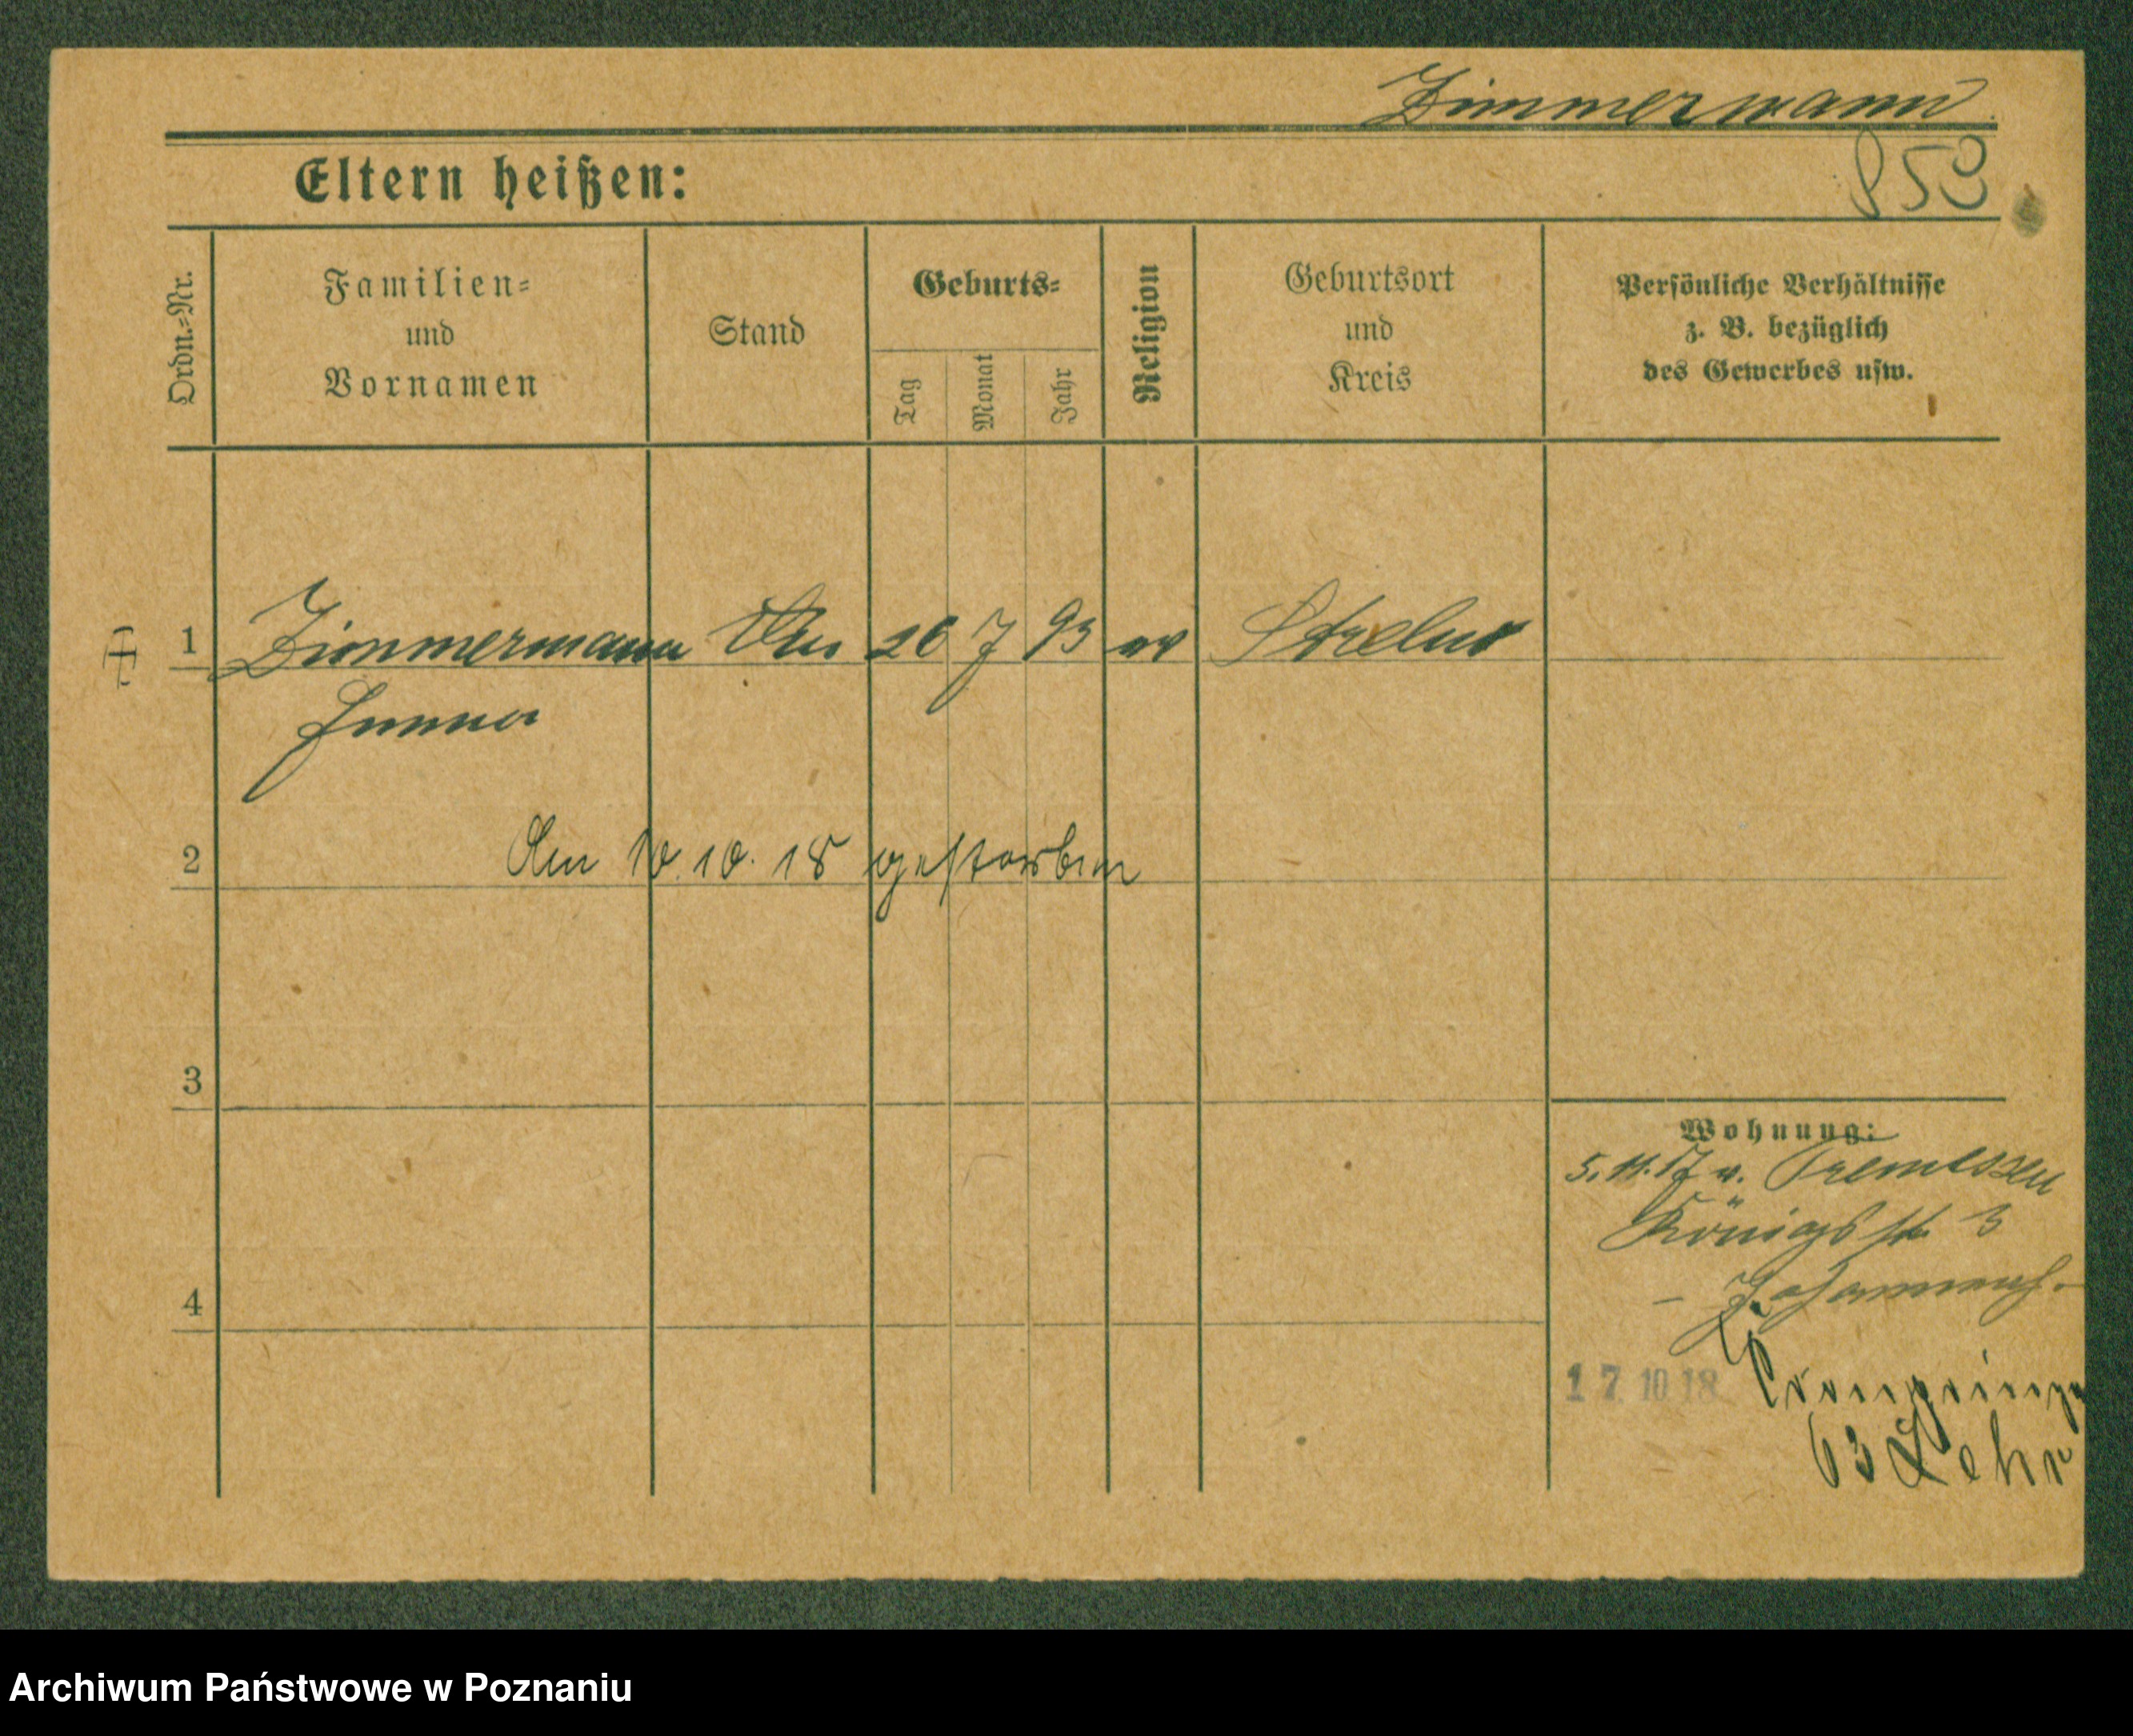 Zimmermann
Eltern heißen:
853
Ordn.=Nr.
Familien=
und
Vornamen
Stand
Geburts=
Tag
Monat
Jahr
Religion
Geburtsort
und
Kreis
Persönliche Verhältnisse
z. B. bezüglich
des Gewerbes usw.
1
Zimmermann 26 7 93 ev Strelno
2
den 10. 10. 18 gestorben
3
Wohnung:
5.11.17 v. Tremessen
Königsstr 3
4
17 10 18
63 Lehr
Archiwum Państwowe w Poznaniu